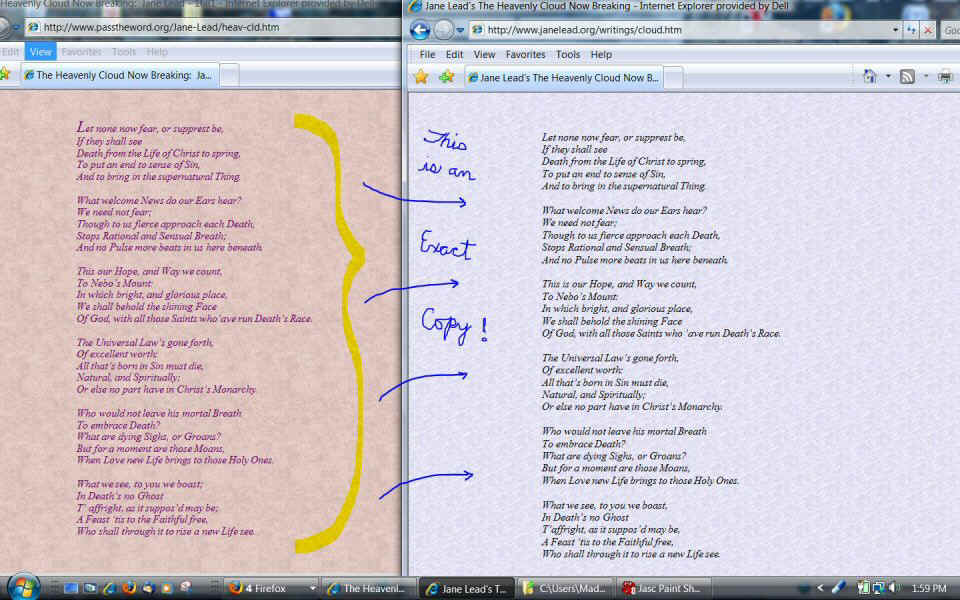 Heavenly Cloud Now Breaking: Jane Lead - Part - Internet Explorer provided by Dell
http://www.passtheword.org/Jane-Lead/heav-cld.htm
Edit View Favorites Tools Help
The Heavenly Cloud Now Breaking: Ja...
Let none now fear, or supprest be,
If they shall see
Death from the Life of Christ to spring,
To put an end to sense of Sin,
And to bring in the supernatural Thing.
What welcome News do our Ears hear?
We need not fear;
Though to us fierce approach each Death,
Stops Rational and Sensual Breath;
And no Pulse more beats in us here beneath.
This our Hope, and Way we count,
To Nebo's Mount:
In which bright, and glorious place,
We shall behold the shining Face
Of God, with all those Saints who'ave run Death's Race.
The Universal Law's gone forth,
Of excellent worth:
All that's born in Sin must die,
Natural, and Spiritually;
Or else no part have in Christ's Monarchy.
Who would not leave his mortal Breath
To embrace Death?
What are dying Sighs, or Groans?
But for a moment are those Moans,
When Love new Life brings to those Holy Ones.
What we see, to you we boast;
In Death's no Ghost
T' affright, as it suppos'd may be;
A Feast 'tis to the Faithful free,
Who shall through it to rise a new Life see.
Jane Lead's The Heavenly Cloud Now Breaking - Internet Explorer provided by Dell
http://www.janelead.org/writings/cloud.htm
Goo
File Edit View Favorites Tools Help
Jane Lead's The Heavenly Cloud Now B...
This
is an
Exact
Copy!
Let none now fear, or supprest be,
If they shall see
Death from the Life of Christ to spring,
To put an end to sense of Sin,
And to bring in the supernatural Thing.
What welcome News do our Ears hear?
We need not fear;
Though to us fierce approach each Death,
Stops Rational and Sensual Breath;
And no Pulse more beats in us here beneath.
This is our Hope, and Way we count,
To Nebo's Mount:
In which bright, and glorious place,
We shall behold the shining Face
Of God, with all those Saints who 'ave run Death's Race.
The Universal Law's gone forth,
Of excellent worth:
All that's born in Sin must die,
Natural, and Spiritually;
Or else no part have in Christ's Monarchy.
Who would not leave his mortal Breath
To embrace Death?
What are dying Sighs, or Groans?
But for a moment are those Moans,
When Love new Life brings to those Holy Ones.
What we see, to you we boast,
In Death's no Ghost
T'affright, as it suppos'd may be,
A Feast 'tis to the Faithful free,
Who shall through it to rise a new Life see.
4 Firefox
The Heavenl...
Jane Lead's T...
C:\Users\Mad...
Jasc Paint Sh...
1:59 PM